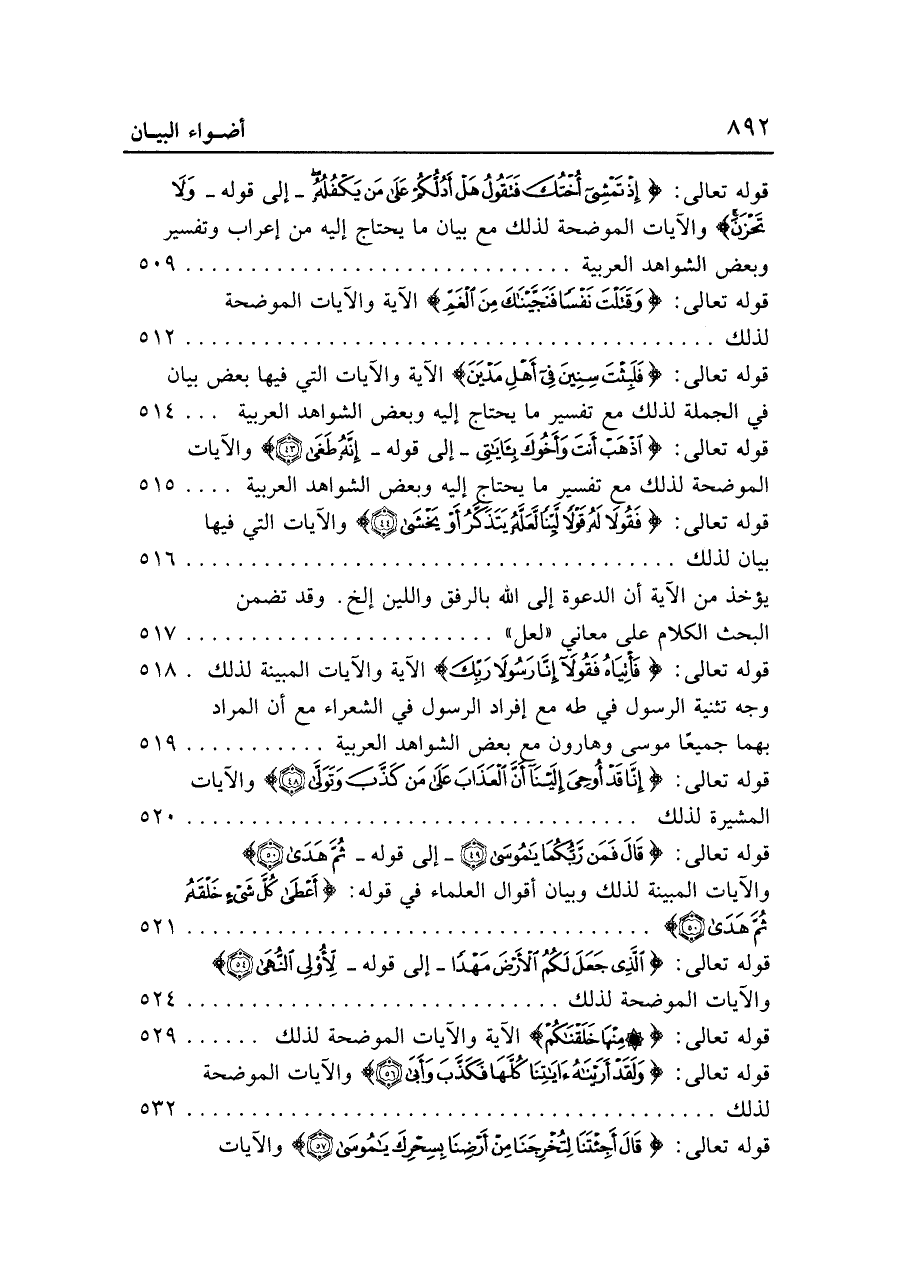 ٨٩٢ أضـواء البيـان
قوله تعالى: ﴿ إِذْ تَمْشِىٓ أُخْتُكَ فَنَقُولُ هَلْ أَدُلُّكُمْ عَلَىٰ مَن يَكْفُلُهُۥ ـ إلى قوله ـ وَلَا
تَحْزَنَۚ﴾ والآيات الموضحة لذلك مع بيان ما يحتاج إليه من إعراب وتفسير
وبعض الشواهد العربية . . . . . . . . . . . . . . . . . . . . . . . . . . . . . . ٥٠٩
قوله تعالى: ﴿ وَقَتَلْتَ نَفْسًا فَنَجَّيْنَٰكَ مِنَ ٱلْغَمِّ ﴾ الآية والآيات الموضحة
لذلك . . . . . . . . . . . . . . . . . . . . . . . . . . . . . . . . . . . . . . . . . ٥١٢
قوله تعالى: ﴿ فَلَبِثْتَ سِنِينَ فِىٓ أَهْلِ مَدْيَنَ﴾ الآية والآيات التي فيها بعض بيان
في الجملة لذلك مع تفسير ما يحتاج إليه وبعض الشواهد العربية . . . ٥١٤
قوله تعالى: ﴿ ٱذْهَبْ أَنتَ وَأَخُوكَ بِـَٔايَٰتِى ـ إلى قوله ـ إِنَّهُۥ طَغَىٰ ٤٣﴾ والآيات
الموضحة لذلك مع تفسير ما يحتاج إليه وبعض الشواهد العربية . . . . ٥١٥
قوله تعالى: ﴿ فَقُولَا لَهُۥ قَوْلًا لَّيِّنًا لَّعَلَّهُۥ يَتَذَكَّرُ أَوْ يَخْشَىٰ ٤٤﴾ والآيات التي فيها
بيان لذلك . . . . . . . . . . . . . . . . . . . . . . . . . . . . . . . . . . . . . . ٥١٦
يؤخذ من الآية أن الدعوة إلى الله بالرفق واللين إلخ. وقد تضمن
البحث الكلام على معاني «لعل» . . . . . . . . . . . . . . . . . . . . . . . . ٥١٧
قوله تعالى: ﴿ فَأْتِيَاهُ فَقُولَآ إِنَّا رَسُولَا رَبِّكَ﴾ الآية والآيات المبينة لذلك . ٥١٨
وجه تثنية الرسول في طه مع إفراد الرسول في الشعراء مع أن المراد
بهما جميعًا موسى وهارون مع بعض الشواهد العربية . . . . . . . . . . . ٥١٩
قوله تعالى: ﴿ إِنَّا قَدْ أُوحِىَ إِلَيْنَآ أَنَّ ٱلْعَذَابَ عَلَىٰ مَن كَذَّبَ وَتَوَلَّىٰ ٤٨﴾ والآيات
المشيرة لذلك . . . . . . . . . . . . . . . . . . . . . . . . . . . . . . . . . . . ٥٢٠
قوله تعالى: ﴿ قَالَ فَمَن رَّبُّكُمَا يَٰمُوسَىٰ ٤٩ ـ إلى قوله ـ ثُمَّ هَدَىٰ ٥٠﴾
والآيات المبينة لذلك وبيان أقوال العلماء في قوله: ﴿ أَعْطَىٰ كُلَّ شَىْءٍ خَلْقَهُۥ
ثُمَّ هَدَىٰ ٥٠﴾ . . . . . . . . . . . . . . . . . . . . . . . . . . . . . . . . . . . . ٥٢١
قوله تعالى: ﴿ ٱلَّذِى جَعَلَ لَكُمُ ٱلْأَرْضَ مَهْدًا ـ إلى قوله ـ لِّأُو۟لِى ٱلنُّهَىٰ ٥٤﴾
والآيات الموضحة لذلك . . . . . . . . . . . . . . . . . . . . . . . . . . . . . ٥٢٤
قوله تعالى: ﴿ ۞ مِنْهَا خَلَقْنَٰكُمْ﴾ الآية والآيات الموضحة لذلك . . . . . . ٥٢٩
قوله تعالى: ﴿ وَلَقَدْ أَرَيْنَٰهُ ءَايَٰتِنَا كُلَّهَا فَكَذَّبَ وَأَبَىٰ ٥٦﴾ والآيات الموضحة
لذلك . . . . . . . . . . . . . . . . . . . . . . . . . . . . . . . . . . . . . . . . . ٥٣٢
قوله تعالى: ﴿ قَالَ أَجِئْتَنَا لِتُخْرِجَنَا مِنْ أَرْضِنَا بِسِحْرِكَ يَٰمُوسَىٰ ٥٧﴾ والآيات